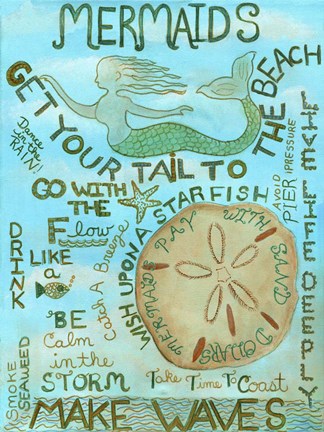 MERMAIDS
GET YOUR TAIL TO THE BEACH
Dance in the RAIN!
AVOID PIER PRESSURE
GO WITH
THE
Flow
WISH UPON A STARFISH
DRINK
LIKE
a
Catch A Breeze
MERMAIDS PAY WITH SAND DOLLARS
BE
Calm
in the
STORM
SMOKE SEAWEED
Take Time To Coast
MAKE WAVES